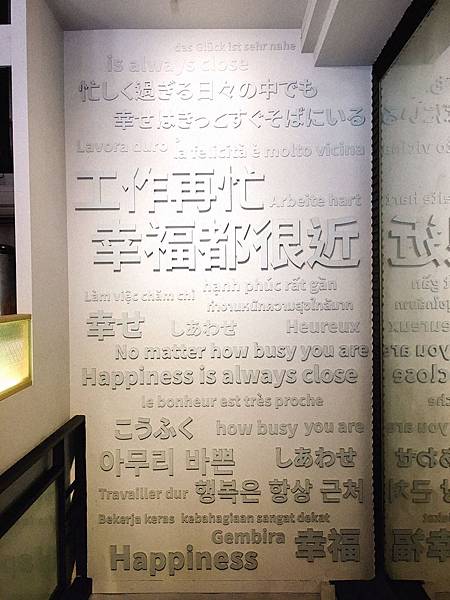 das Glück ist sehr nahe
is always close
忙しく過ぎる日々の中でも
幸せはきっとすぐそばにいる
Lavora duro è la felicità è molto vicina
工作再忙 Arbeite hart
幸福都很近
hạnh phúc rất gần
Làm việc chăm chỉ ทำงานหนักความสุขใกล้มาก
幸せ しあわせ Heureux
No matter how busy you are
Happiness is always close
le bonheur est très proche
こうふく how busy you are
아무리 바쁜 しあわせ
Travailler dur 행복은 항상 근처
Bekerja keras kebahagiaan sangat dekat
Gembira 幸福
Happiness